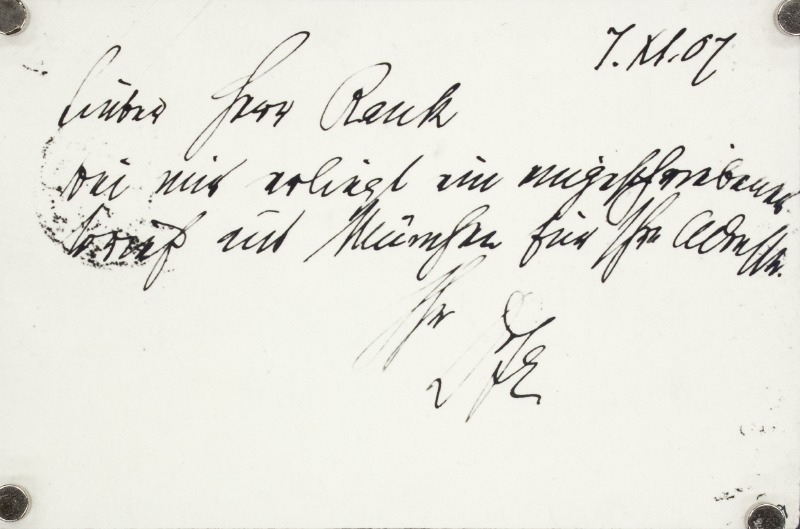 7. XI. 07
Lieber Herr Rank
Bei mir erliegt ein eingeschriebener
Brief aus München für Ihre Adresse.
Ihr